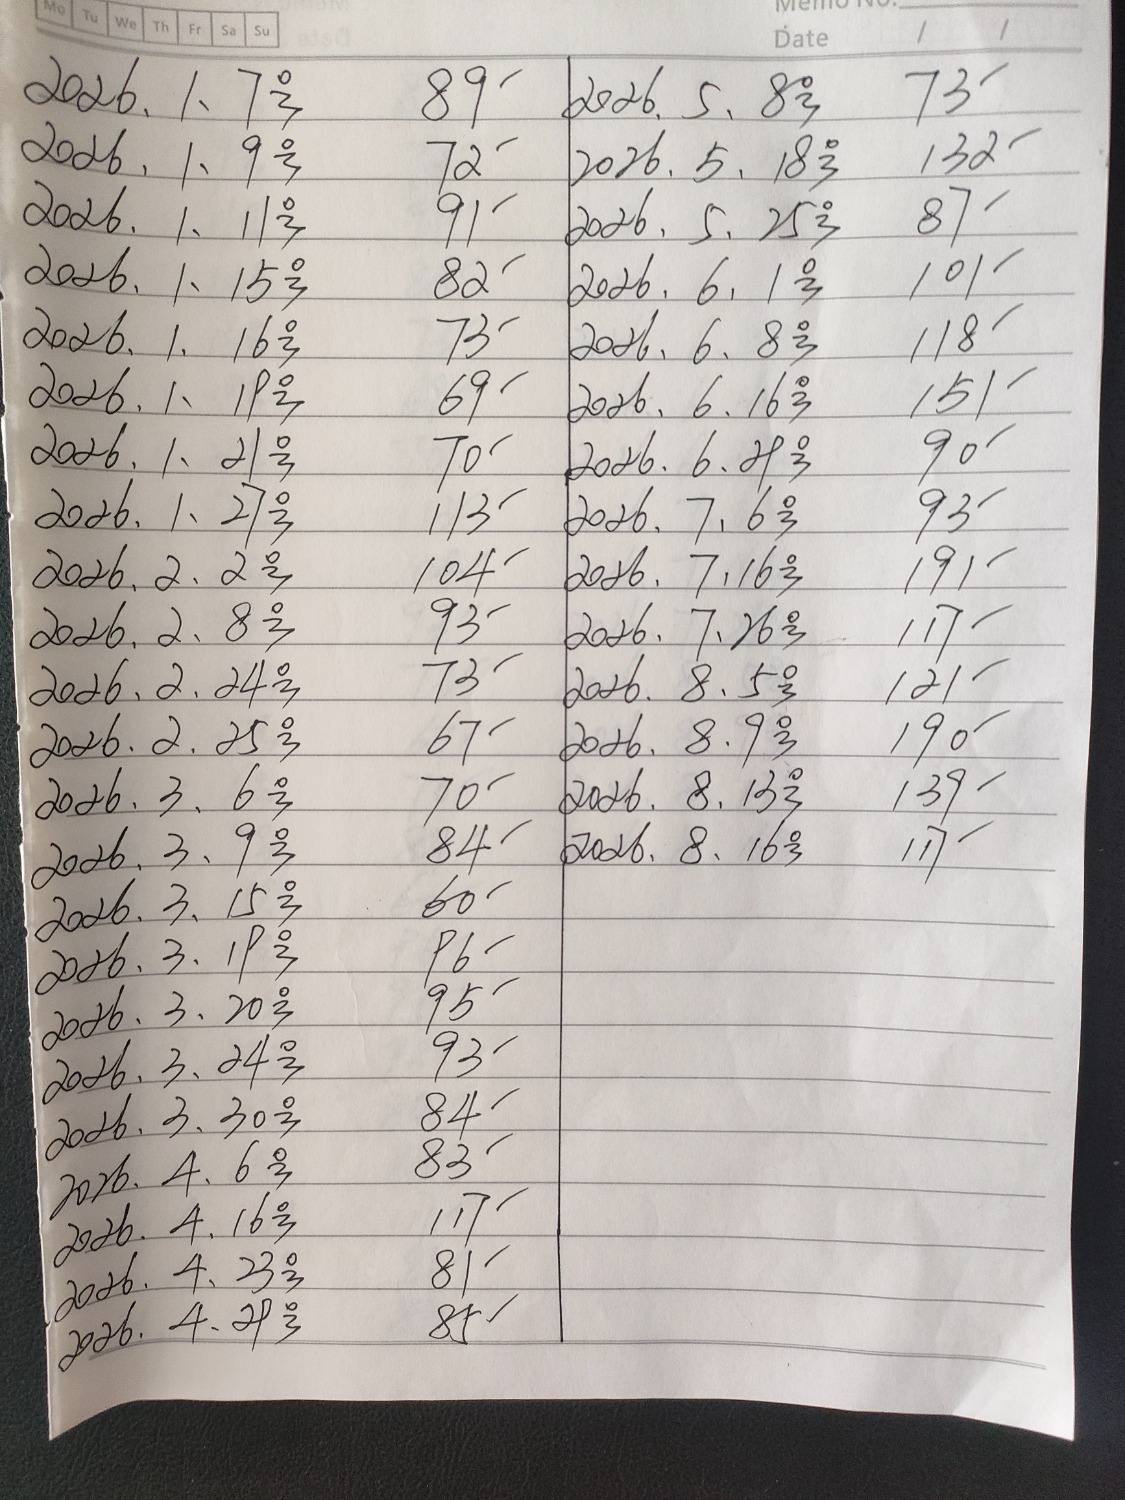 Mo Tu We Th Fr Sa Su
Memo No.
Date / /
2026. 1. 7号 89
2026. 1. 9号 72
2026. 1. 11号 91
2026. 1. 15号 82
2026. 1. 16号 73
2026. 1. 19号 69
2026. 1. 21号 70
2026. 1. 27号 113
2026. 2. 2号 104
2026. 2. 8号 93
2026. 2. 24号 73
2026. 2. 25号 67
2026. 3. 6号 70
2026. 3. 9号 84
2026. 3. 15号 60
2026. 3. 19号 96
2026. 3. 20号 95
2026. 3. 24号 93
2026. 3. 30号 84
2026. 4. 6号 83
2026. 4. 16号 117
2026. 4. 23号 81
2026. 4. 29号 85
2026. 5. 8号 73
2026. 5. 18号 132
2026. 5. 25号 87
2026. 6. 1号 101
2026. 6. 8号 118
2026. 6. 16号 151
2026. 6. 29号 90
2026. 7. 6号 93
2026. 7. 16号 191
2026. 7. 26号 117
2026. 8. 5号 121
2026. 8. 9号 190
2026. 8. 13号 139
2026. 8. 16号 117